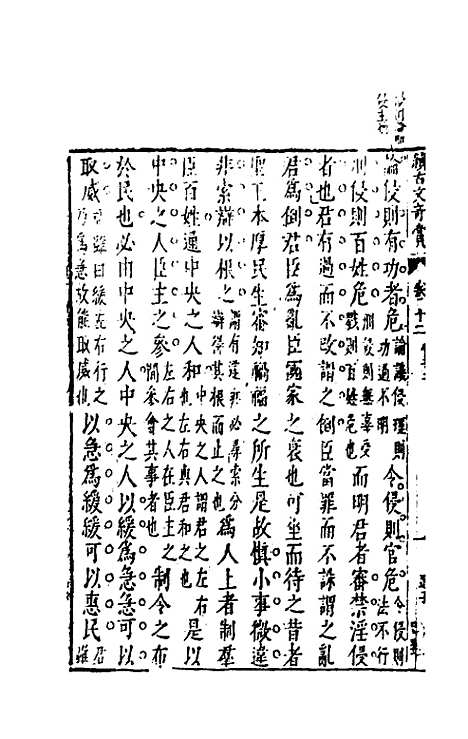 續古文奇賞 卷十二
論侵則有功者危論議侵理則功過不明令侵則官危令侵則法不行
刑侵則百姓危刑侵則無辜受戮則百姓危也而明君者審禁淫侵
者也君有過而不改謂之倒臣當罪而不誅謂之亂
君為倒君臣為亂臣國家之衰也可坐而待之昔者
聖王本厚民生審知禍福之所生是故慎小事微違
非索辯以根之謂有違非必尋索分辯得其根而止之也為人上者制羣
臣百姓通中央之人和中央之人謂君之左右也左右與君和之也是以
中央之人臣主之參左右之人在臣主之間參會其事者也制令之布
於民也必由中央之人中央之人以緩為急急可以
取威雖曰緩左右行之為急故能取威也以急為緩緩可以惠民